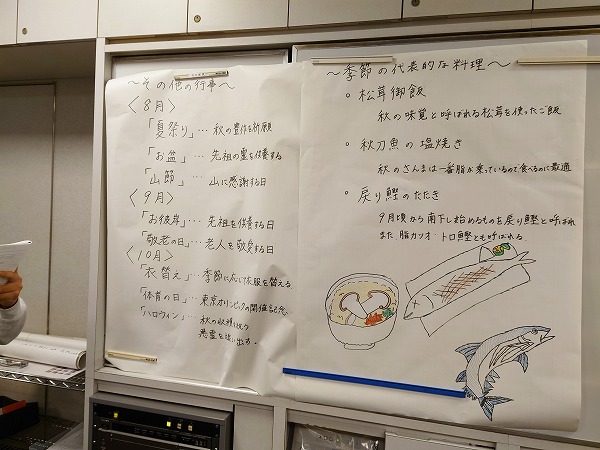 ～その他の行事～
〈8月〉
「夏祭り」… 秋の豊作を祈願
「お盆」… 先祖の霊を供養する
「山節」… 山に感謝する日
〈9月〉
「お彼岸」… 先祖を供養する日
「敬老の日」… 老人を敬愛する日
〈10月〉
「衣替え」… 季節に応じ衣服を替える
「体育の日」… 東京オリンピックの開催を記念
「ハロウィン」… 秋の収穫を祝い
悪霊を追い出す。
～季節の代表的な料理～
○ 松茸御飯
秋の味覚と呼ばれる松茸を使ったご飯
○ 秋刀魚の塩焼き
秋のさんまは一番脂が乗っているので食べるのに最適
○ 戻り鰹のたたき
9月頃から南下し始めるものを戻り鰹と呼ばれ
また 脂カツオ トロ鰹とも呼ばれる